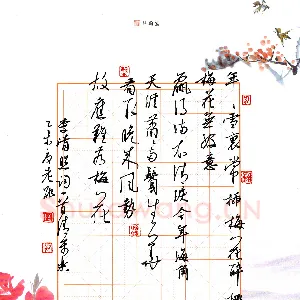 年年雪里常插梅花醉挼
梅花无好意
赢得满衣清泪今年海角
天涯萧萧两鬓生华
看取晚来风势
故应难看梅花
李清照词一首清平乐
乙未